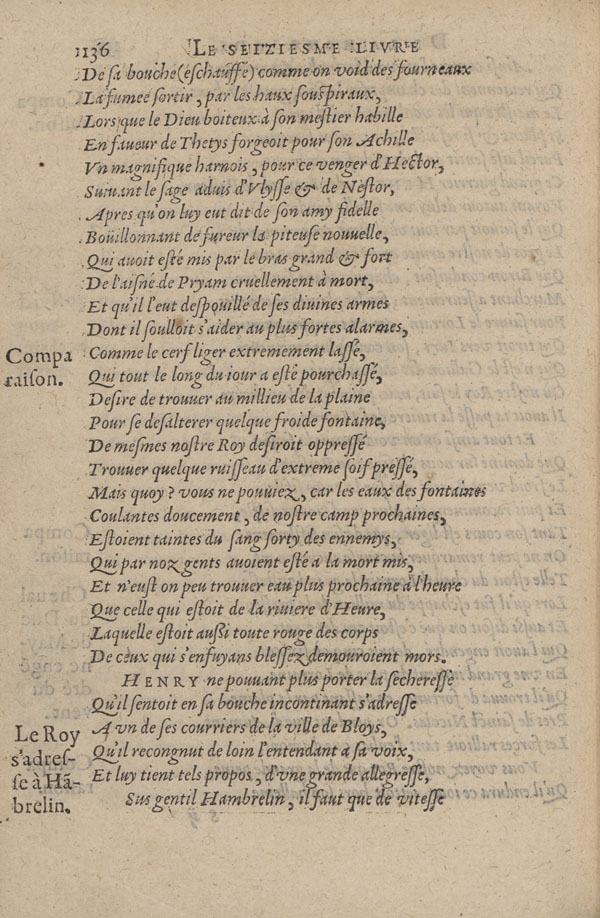 1136 LE SEIZIESME LIVRE
De sa bouche (eschauffé) comme on void des fourneaux
La fumee sortir, par les haux souspiraux,
Lors que le Dieu boiteux à son mestier habille
En faveur de Thetys forgeoit pour son Achille
Vn magnifique harnois, pour ce venger d'Hector,
Suivant le sage aduis d'Vlysse & de Nestor,
Apres qu'on luy eut dit de son amy fidelle
Boüillonnant de fureur la piteuse nouuelle,
Qui auoit esté mis par le bras grand & fort
De l'aisné de Pryam cruellement à mort,
Et qu'il l'eut despouillé de ses diuines armes
Dont il soulloit s'aider au plus fortes alarmes,
Compa
raison.
Comme le cerf liger extremement lassé,
Qui tout le long du iour a esté pourchassé,
Desire de trouuer au millieu de la plaine
Pour se desalterer quelque froide fontaine,
De mesmes nostre Roy desiroit oppressé
Trouuer quelque ruisseau d'extreme soif pressé,
Mais quoy? vous ne pouuiez, car les eaux des fontaines
Coulantes doucement, de nostre camp prochaines,
Estoient taintes du sang sorty des ennemys,
Qui par noz gents auoient esté a la mort mis,
Et n'eust on peu trouuer eau plus prochaine à l'heure
Que celle qui estoit de la riuiere d'Heure,
Laquelle estoit aussi toute rouge des corps
De ceux qui s'enfuyans blessez demouroient mors.
HENRY ne pouuant plus porter la secheresse
Qu'il sentoit en sa bouche incontinant s'adresse
Le Roy
s'adres-
se à Hā-
brelin.
A vn de ses courriers de la ville de Bloys,
Qu'il recongnut de loin l'entendant a sa voix,
Et luy tient tels propos, d'vne grande allegresse,
Sus gentil Hambrelin, il faut que de vitesse